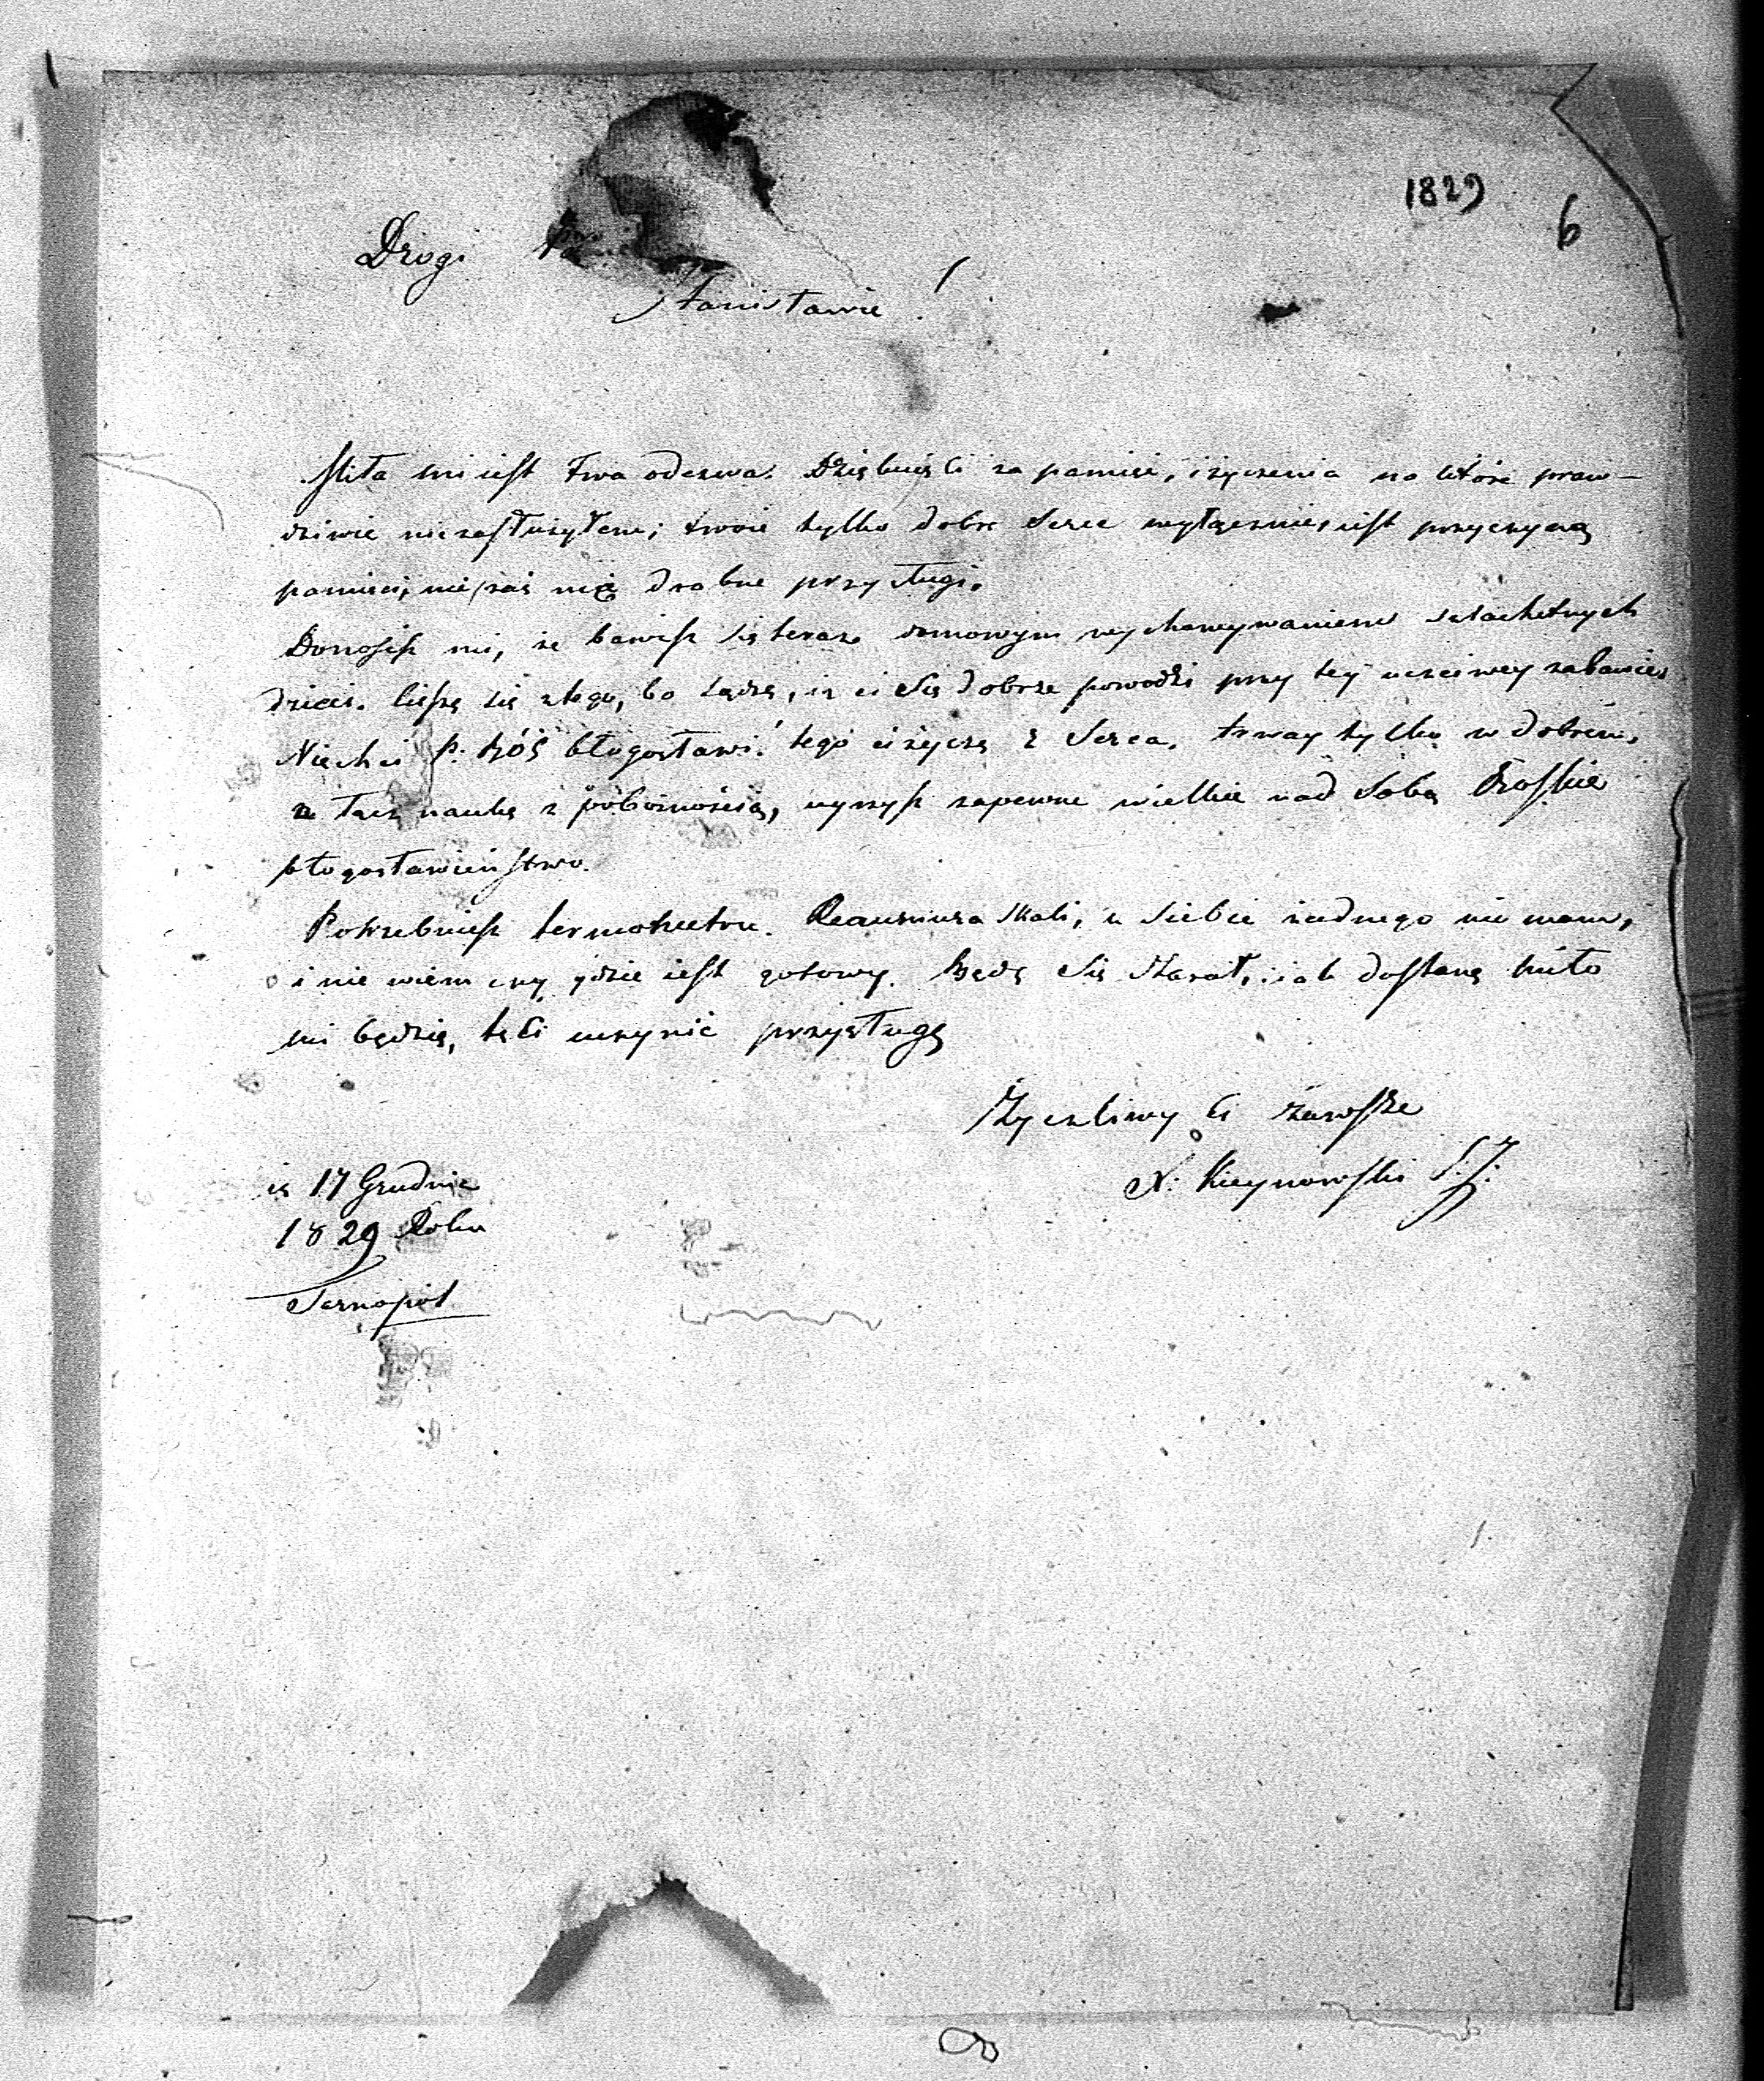 1829
6
Drogi
Stanisławie!
Miła mi iest Twa odezwa. Dziękuię Ci za pamięć, i życzenia na które praw-
dziwie nie zasłużyłem; twoie tylko dobre Serce wyłącznie iest przyczyną
pamięci, nie zaś me drobne przysługi.
Donosisz mi, że bawisz się teraz domowym wychowywaniem szlachetnych
dzieci. Cieszę się z tego, bo sądzę, iż ci się dobrze powodzi przy tey uczciwey zabawie.
Niech ci P. Bóg błogosławi! tego ci życzę z Serca. trway tylko w dobrém,
a łącz naukę z pobożnością, uyrzysz zapewne wielkie nad Sobą Boskie
błogosławieństwo.
Potrzebuiesz termometru Reaumiura skali, u siebie żadnego nie mam,
i nie wiem czy gdzie iest gotowy. Będę się starał, iak dostanę miło
mi będzie, tę Ci uczynić przysługę
Życzliwy Ci zawsze
N. Kieynowski S.J.
17 Grudnia
1829 Roku
Tarnopol